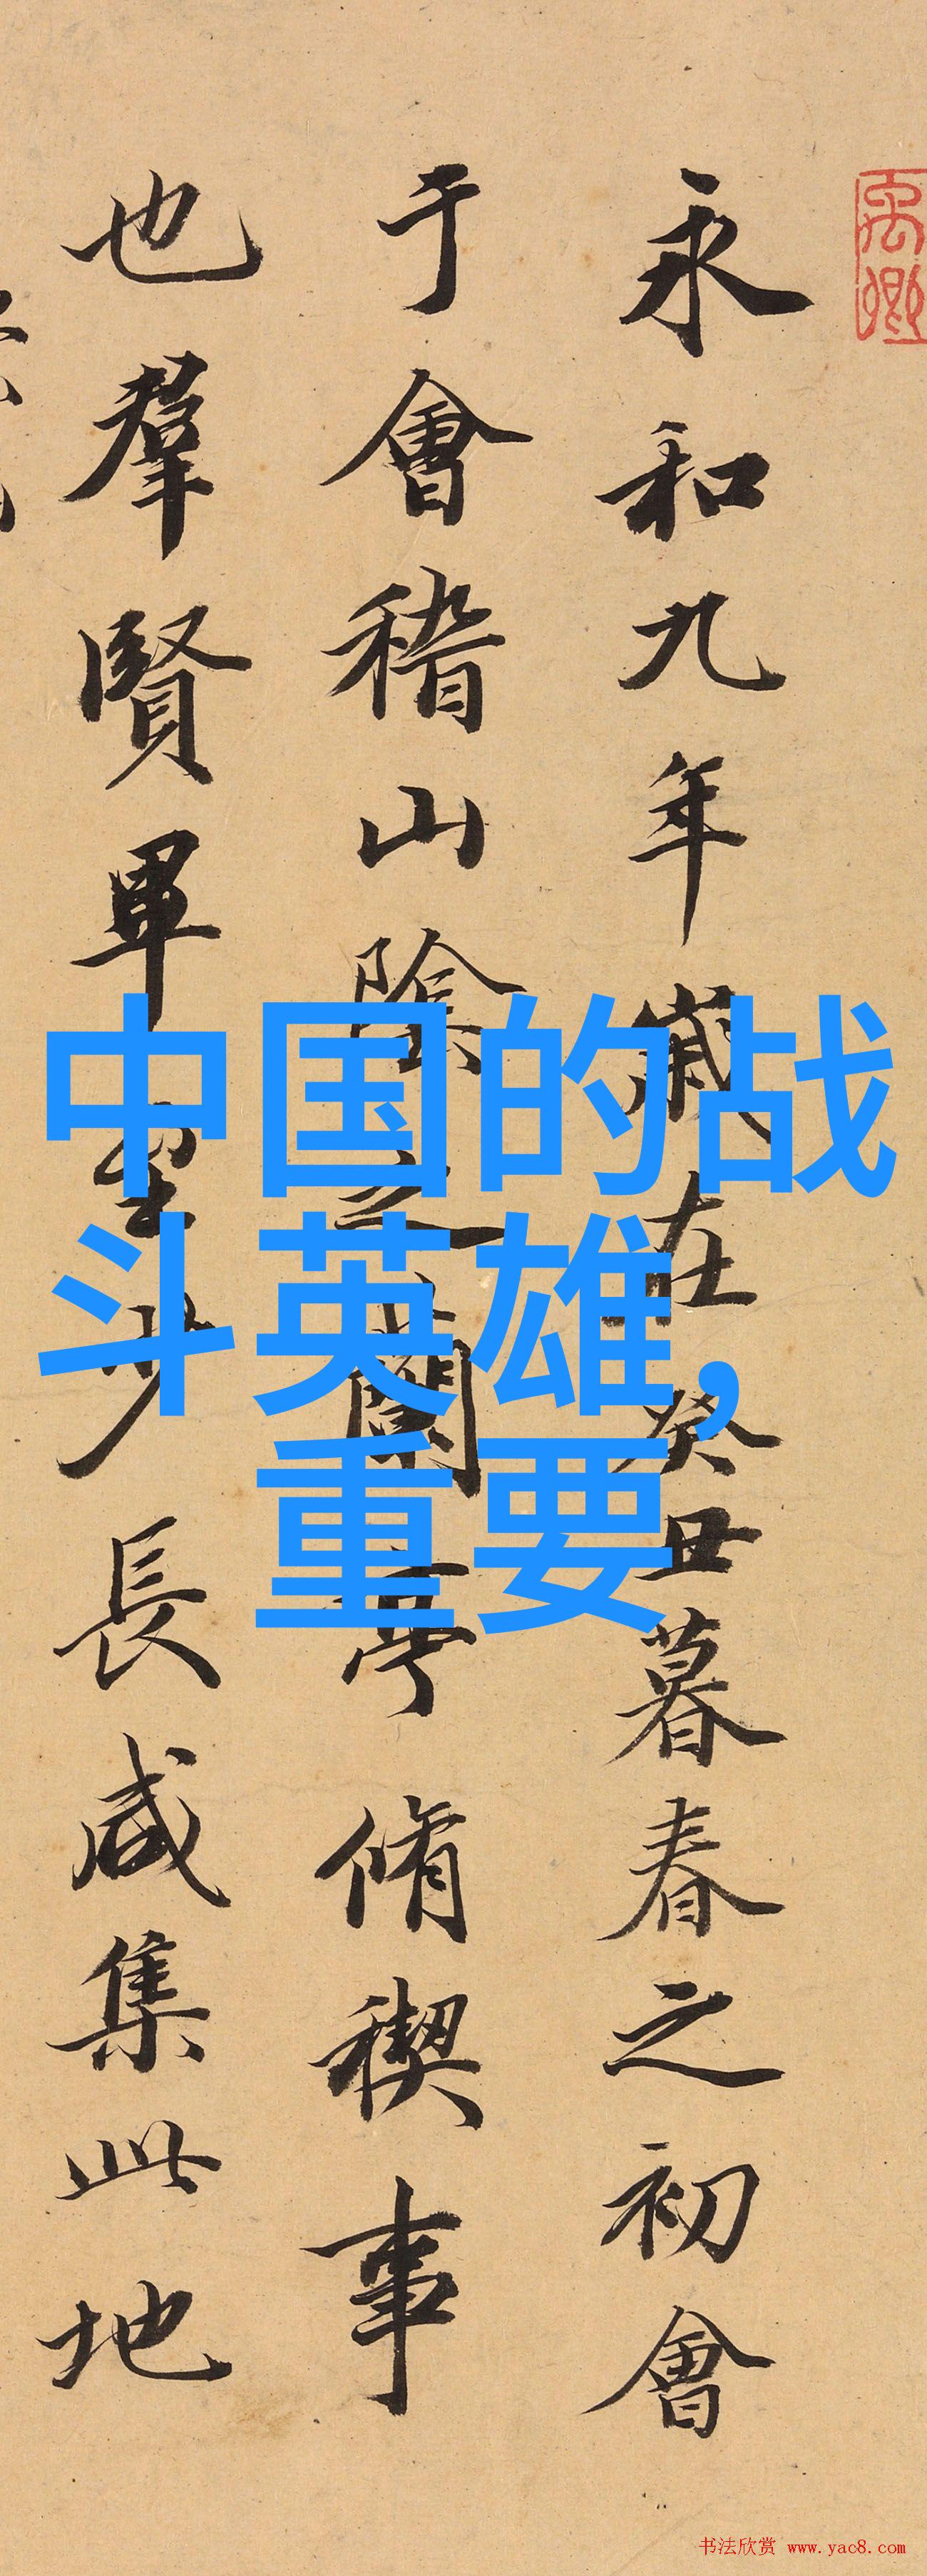 永和九年歲在癸丑暮春之初會
于會稽山陰之蘭亭脩稧事
也羣賢畢至少長咸集此地
中国的战
斗英雄,
重要
书法欣赏 www.yac8.com